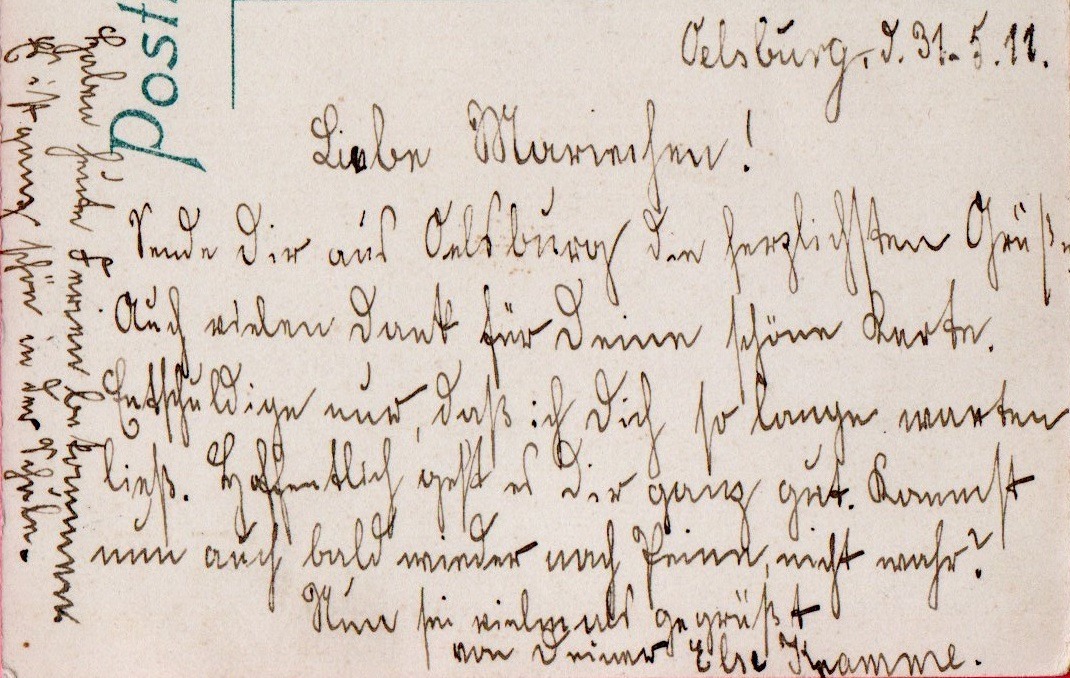 Post
Oelsburg, d. 31. 5. 11.
Liebe Mariechen!
Sende Dir aus Oelsburg die herzlichsten Grüße
Auch vielen Dank für Deine schöne Karte.
Entschuldige nur, daß ich Dich so lange warten
ließ. Hoffentlich geht es Dir ganz gut. Kommst
nun auch bald wieder nach Peine, nicht wahr?
Nun sei vielmals gegrüßt
von Deiner Else Kramme.
Haben heute Ferien bekommen
Es ist ganz schön in der Schule.